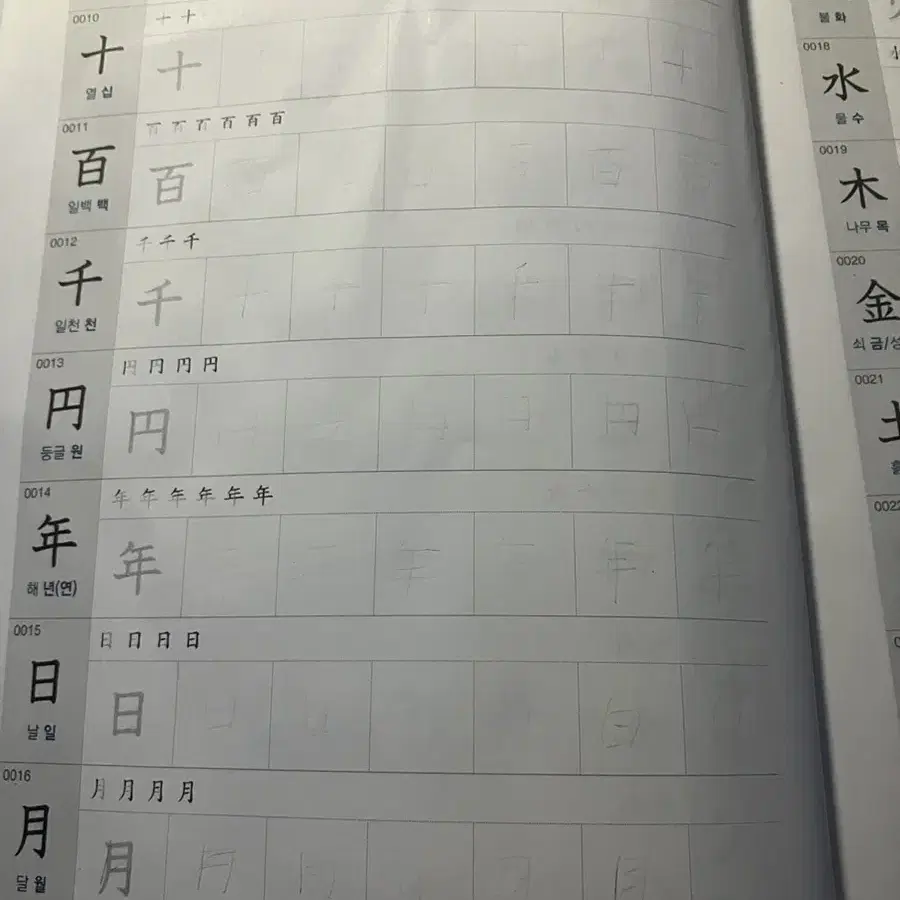 0010
十 十
十
十
열 십
0011
百 百 百 百 百 百
百
百
일백 백
0012
千 千 千
千
千
일천 천
0013
円 円 円 円
円
円
둥글 원
0014
年 年 年 年 年 年
年
年
해 년(연)
0015
日 日 日 日
日
日
날 일
0016
月 月 月 月
月
月
달 월
불 화
0018
水
물 수
0019
木
나무 목
0020
金
쇠 금/성
0021